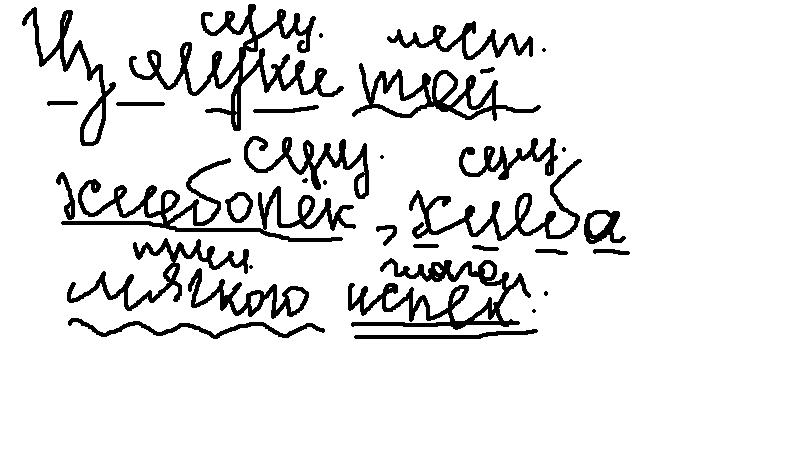 сущ. мест.
Из муки той
сущ. сущ.
хлебопёк, хлеба
прил. глагол.
мягкого испек.